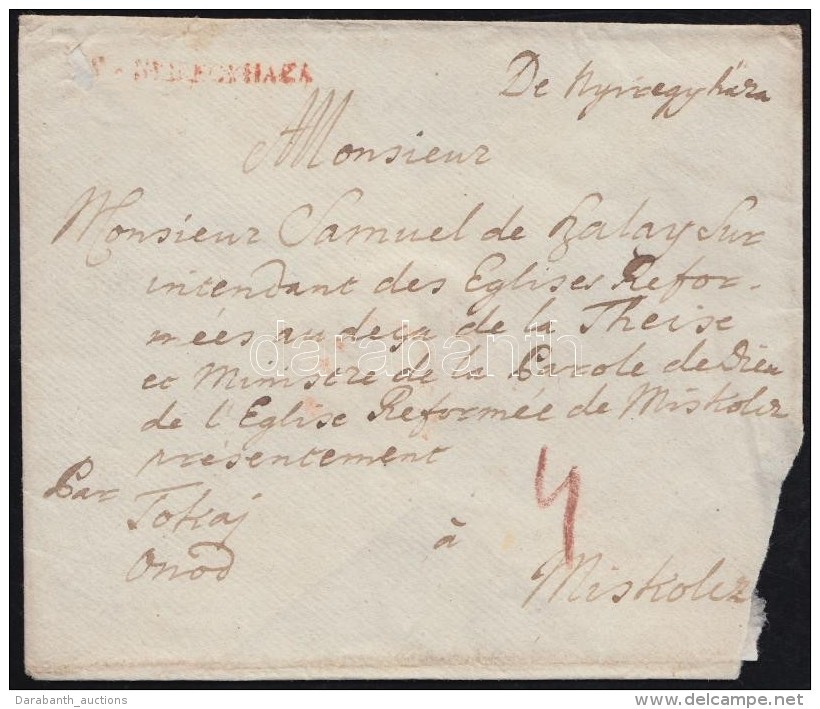 De Nyiregyhàza
Monsieur
Monsieur Samuel de Szalay Sur
intendant des Eglises Refor-
mées au deça de la Theise
darabanth
et Ministre de la Parole de Dieu
de l'Eglise Reformée de Miskolcz
présentement
Par Tokaj
Onod
à
4
Miskolcz
Darabanth_auctions
www.delcampe.net